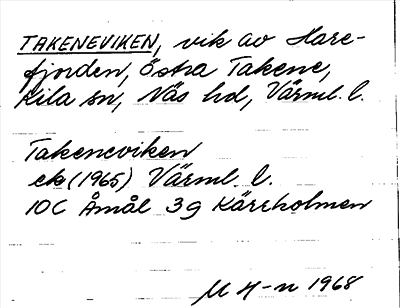 TAKENEVIKEN, vik av Hare-
fjorden, Östra Takene,
Kila sn, Näs hd, Värml. l.
Takeneviken
ek (1965) Värml. l.
10C Åmål 3g Kärrholmen
M H-n 1968